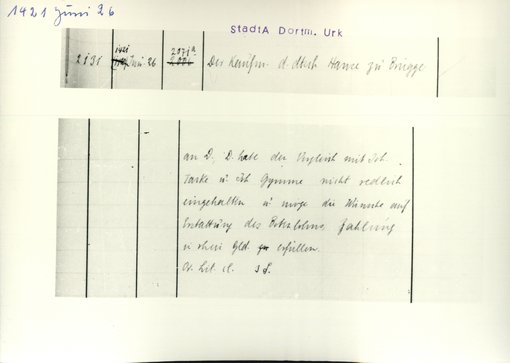 1421 Juni 26
StadtA Dortm. Urk
2131 1421 Juni 26 2071a Des Kaufm. d. dtsch Hanse zu Brügge
an D., D. habe den Vergleich mit Joh.
Taske u. Joh Gymme nicht redlich
eingehalten u. möge die Wünsche auf
Erstattung des Botenlohns, Zahlung
v. rhein. Gld. erfüllen.
Or. Lit. cl. 3 S.